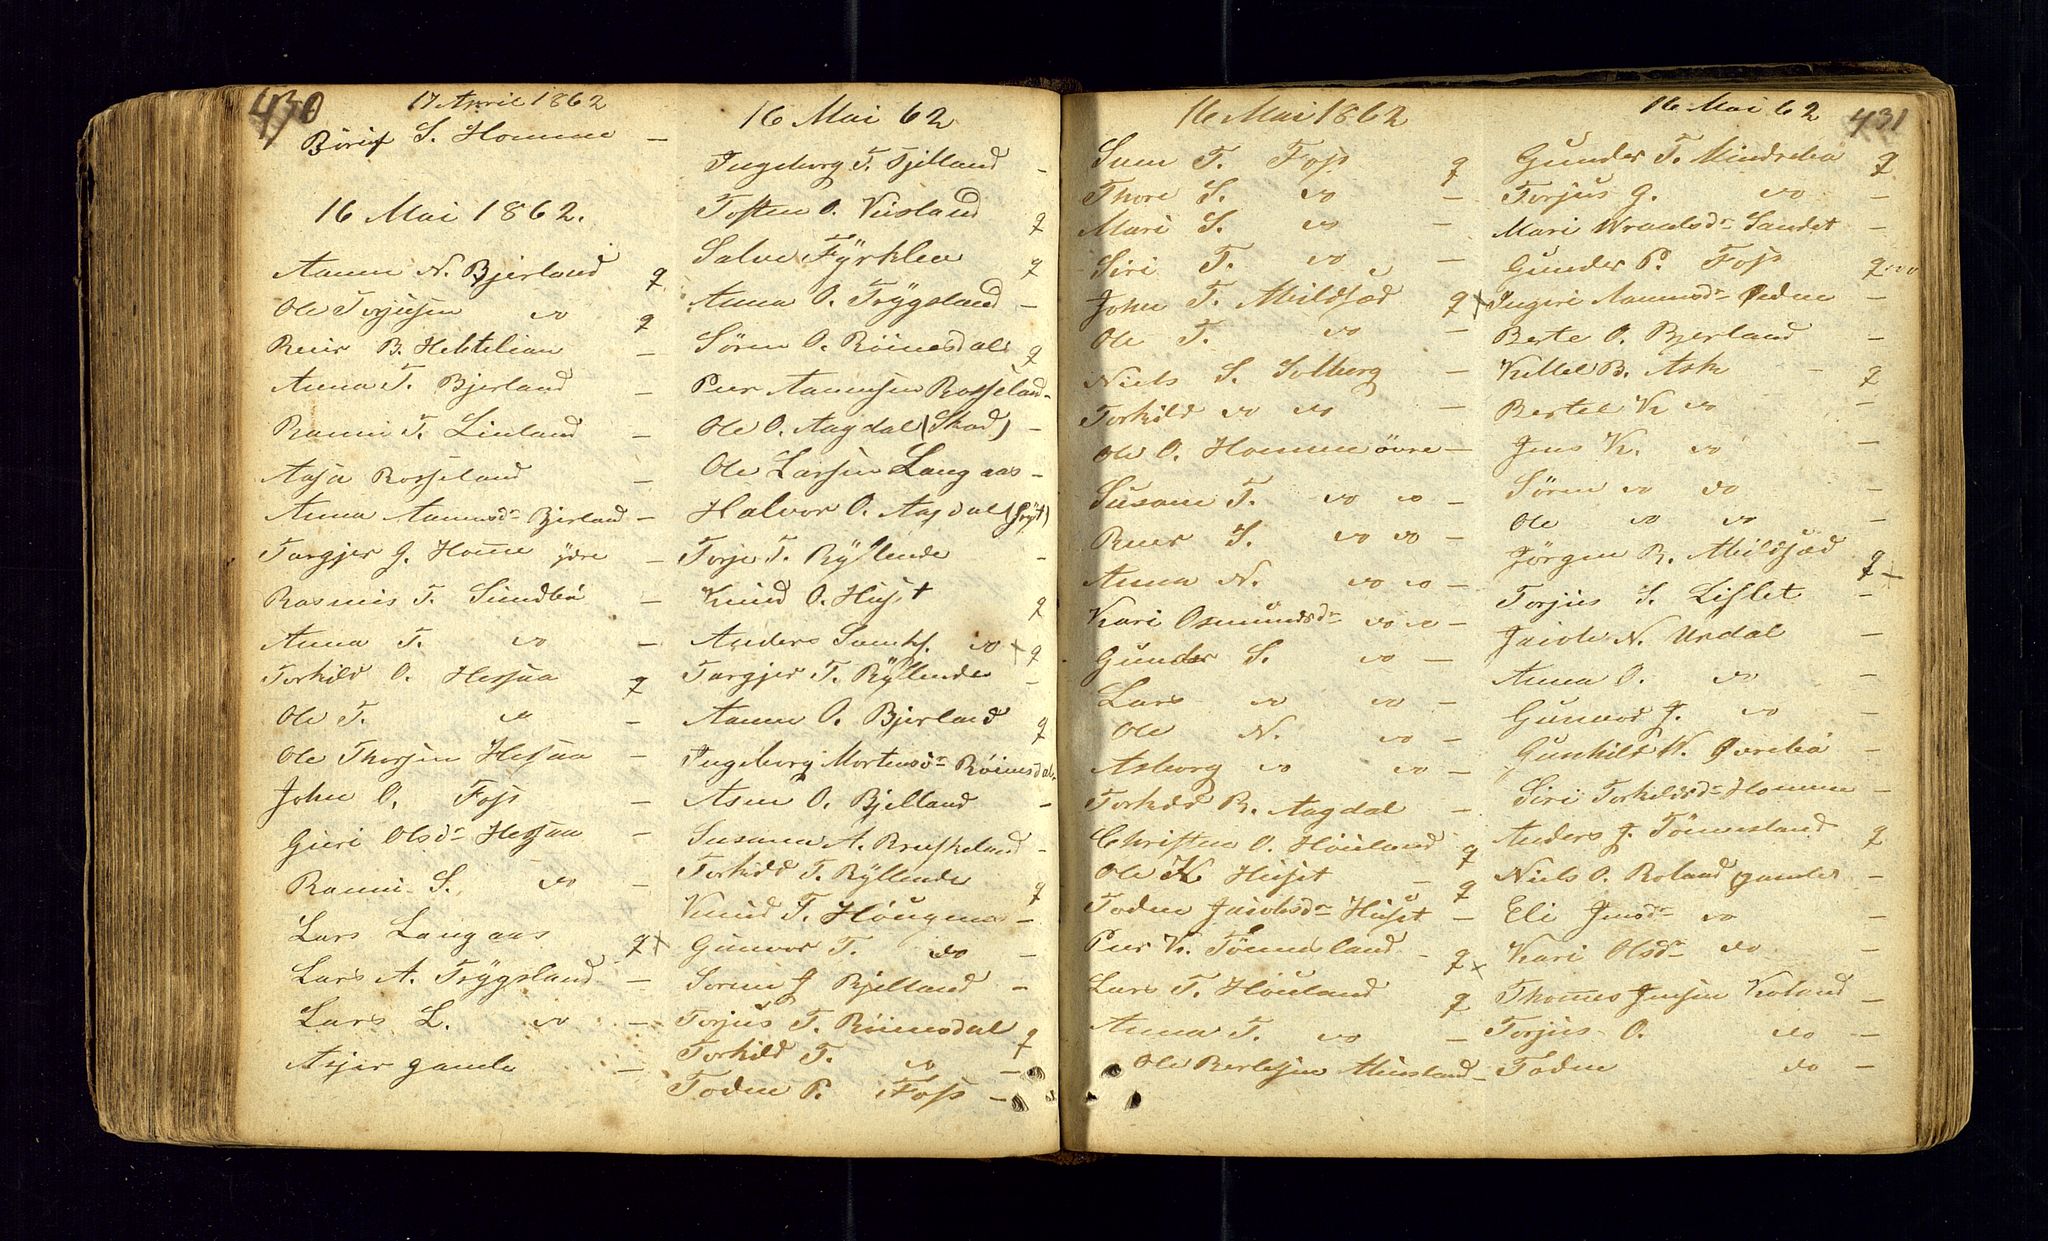 430
17 April 1862
Börif S. Homme –
16 Mai 1862.
Aanen N. Bjerland g
Ole Torjusen do g
Reier B. Hektilien –
Anna T. Bjerland –
Rannei T. Linland –
Aasa Rosseland –
Anna Aanensdr Bjerland –
Targjer G. Home ydre –
Rasmus T. Sundbö –
Anna T. do –
Torkild O. Hessaa g
Ole T. do –
Ole Thorsen Hessaa –
John O. Foss –
Guri Olsdr Hessaa –
Rannei S. do –
Lars Langaas g x
Lars A. Trygsland –
Lars L. do –
Asjer gamle –
16 Mai 62
Ingeborg T. Fjelland –
Tosten O. Viisland g
Salve Fyrklev g
Anna O. Trygsland –
Sören O. Röinesdal g
Peer Aanensen Rosseland –
Ole O. Aagdal (Skad) –
Ole Larsen Langaas –
Halvor O. Aagdal
Torje T. Ryllende –
Knud O. Huset g
Anders Samks. do x g
Targjer T. Ryllende –
Aanen O. Bjerland g
Ingeborg Mortensdr Röinesdal –
Asen O. Bjelland –
Susana A. Bruskeland –
Torkild T. Ryllende g
Knud T. Hougen –
Gunvor T. do –
Soren J Bjelland –
Torjus T. Röinesdal g
Torkild T. do –
Todne P. Foss –
16 Mai 1862
Sven T. Foss g
Thore S. do –
Mari S. do –
Siri T. do –
John T. Mildsæd g x
Ole T. do –
Niels S. Solberg –
Torkild do do –
Ole O. Homme övre –
Susane T. do do –
Reier S. do do –
Anna N. do do –
Kari Osmundsdr do do –
Gunder S. do –
Lars do do –
Ole N. do –
Asborg do do –
Torkild R. Aagdal –
Christen O. Höiland g
Ole K Huset – g
Todne Jacobsdr Huset –
Peer K. Tönnesland – g x
Lars T. Höiland g
Anna T. do –
Ole Bertesen Muusland –
16 Mai 62
431
Gunder T. Mindrebö g
Torjus G. do –
Mari Wraalsdr Sandet –
Gunder P. Foss g
Ingeri Aanensdr Ödne –
Berte O. Bjerland –
Kittel B. Ask – g
Bertel K do –
Jens K. do –
Sören do do –
Ole do do –
Jörgen R. Mildsæd g x
Torjus S. Lislet –
Jacob N. Urdal –
Anna O. do –
Gunvor J. do –
Gunhild N. Övrebö –
Siri Torkildsdr Homme –
Anders J. Tönnesland g
Niels O. Roland gamle –
Eli Jensdr do –
Kari Olsdr do –
Thomes Jensen Roland –
Torjus O. do –
Todne do –